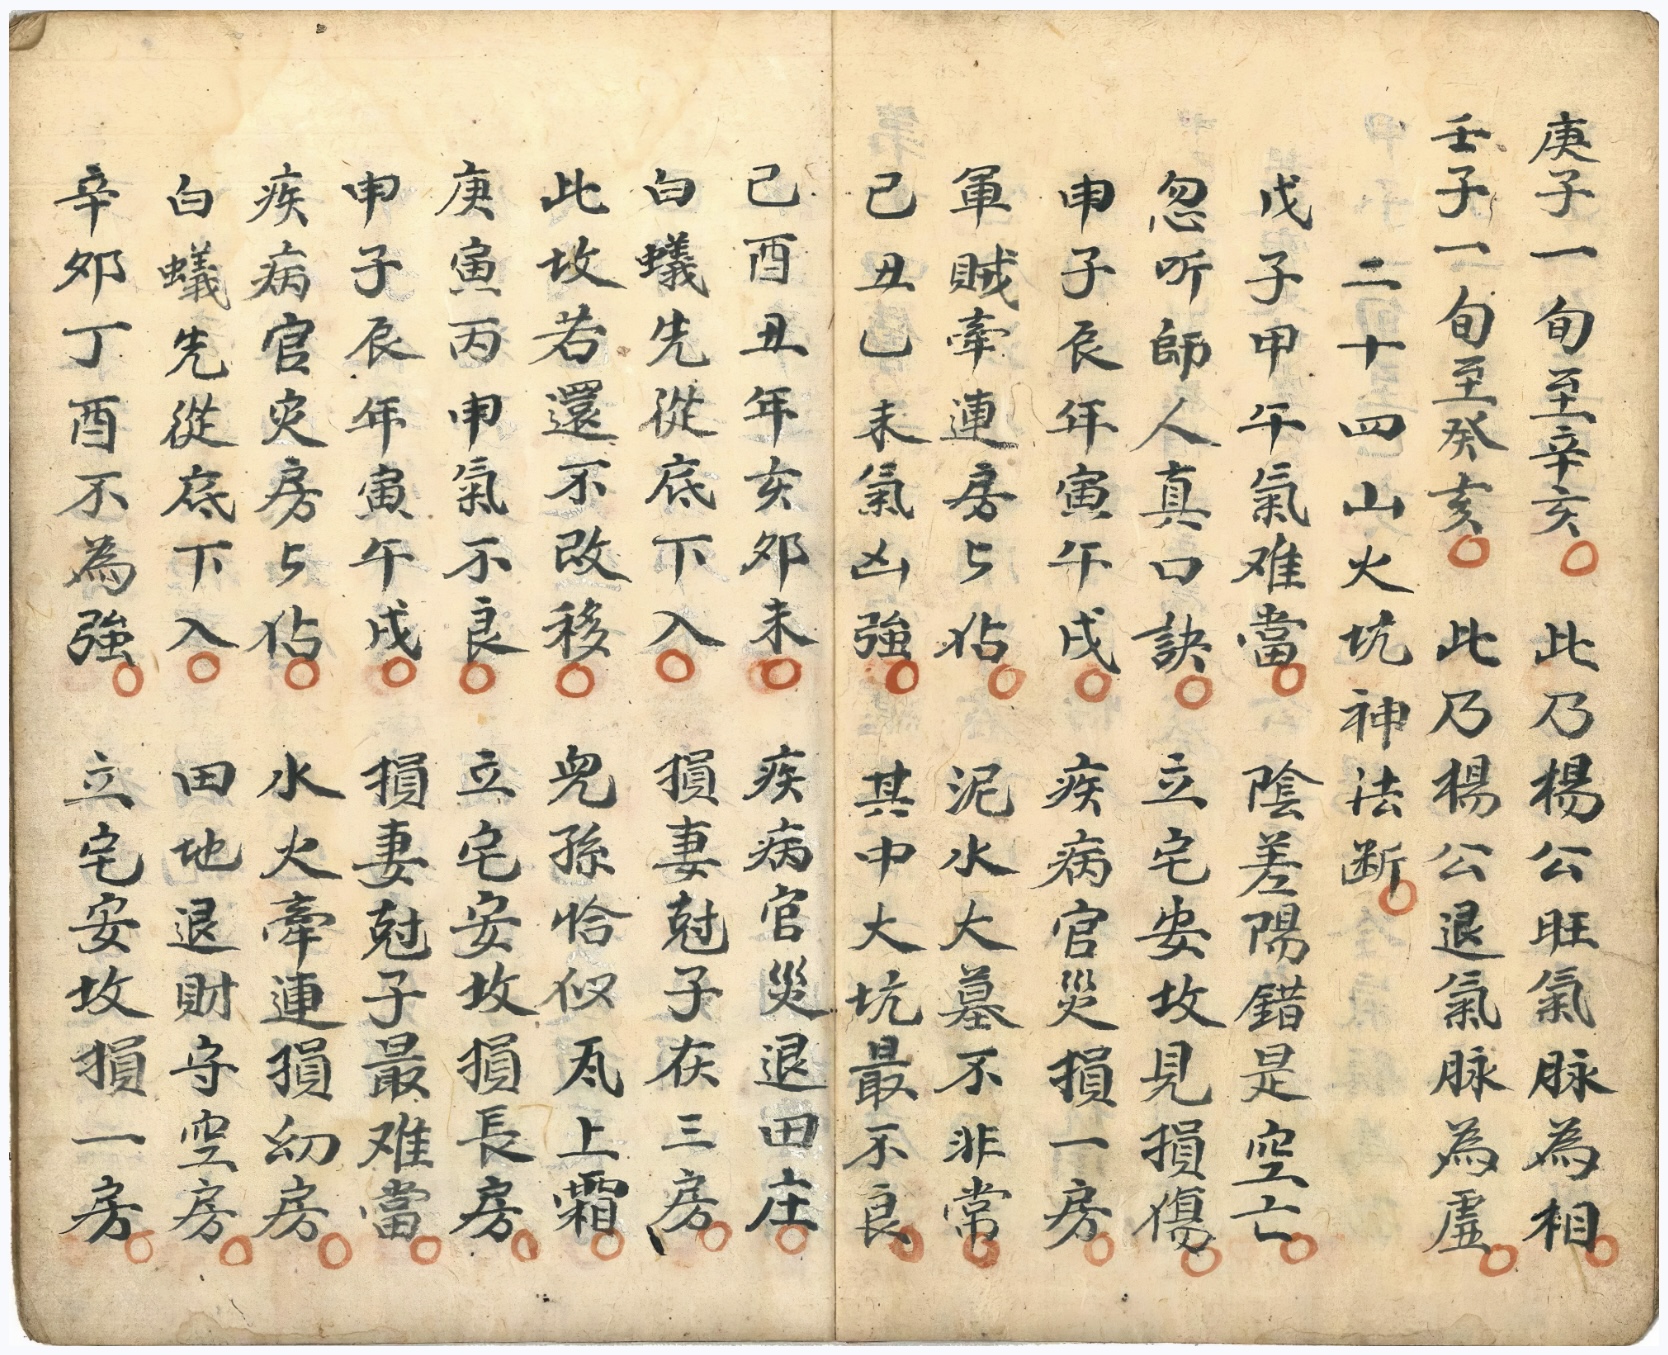 庚子一旬至辛亥○此乃楊公旺氣脉為相○
壬子一旬至癸亥○此乃楊公退氣脉為虛○
二十四山火坑神法断○
戊子甲午氣难當○陰差陽錯是空亡○
忽听師人真口訣○立宅安坟見損傷○
申子辰年寅午戌○疾病官災損一房○
軍賊牽連房占○泥水大墓不非常○
己丑乙未氣凶強○其中大坑最不良○
己酉丑年亥夘未○疾病官災退田庄○
白蟻先從底下入○損妻尅子在三房○
此坟若還不改移○兒孫恰似瓦上霜○
庚寅丙申氣不良○立宅安坟損長房○
申子辰年寅午戌○損妻尅子最难當○
疾病官灾房占○水火牽連損幼房○
白蟻先從底下入○田地退財守空房○
辛夘丁酉不為強○立宅安坟損一房○